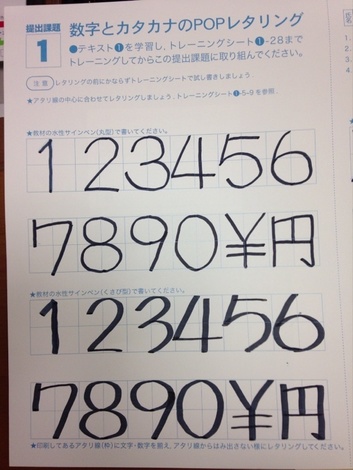 提出課題
1
数字とカタカナのPOPレタリング
●テキスト❶を学習し、トレーニングシート❶-28まで
トレーニングしてからこの提出課題に取り組んでください。
注意 レタリングの前にかならずトレーニングシートで試し書きしましょう.
★アタリ線の中心に合わせてレタリングしましょう.トレーニングシート❶-5~9を参照.
★教材の水性サインペン(丸型)で書いてください。
123456
7890¥円
★教材の水性サインペン(くさび型)で書いてください。
123456
7890¥円
★印刷してあるアタリ線(枠)に文字・数字を揃え、アタリ線からはみ出さない様にレタリングしてください。